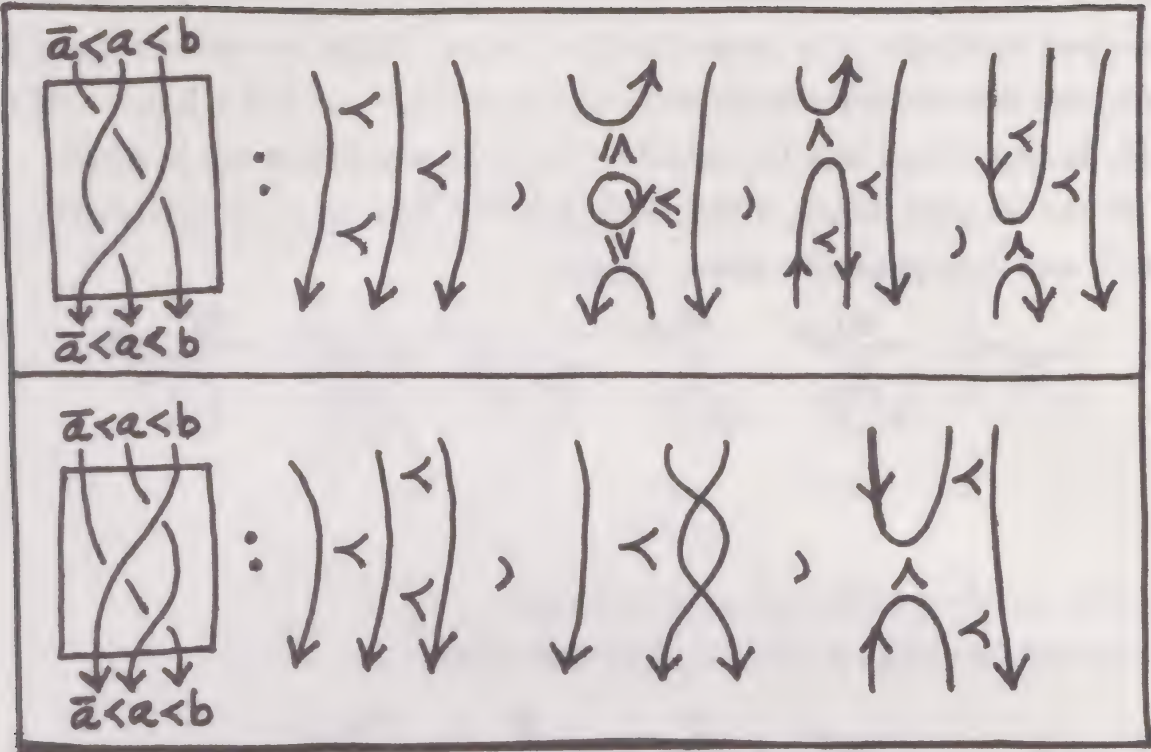 a̅<a<b
a̅<a<b
a̅<a<b
a̅<a<b